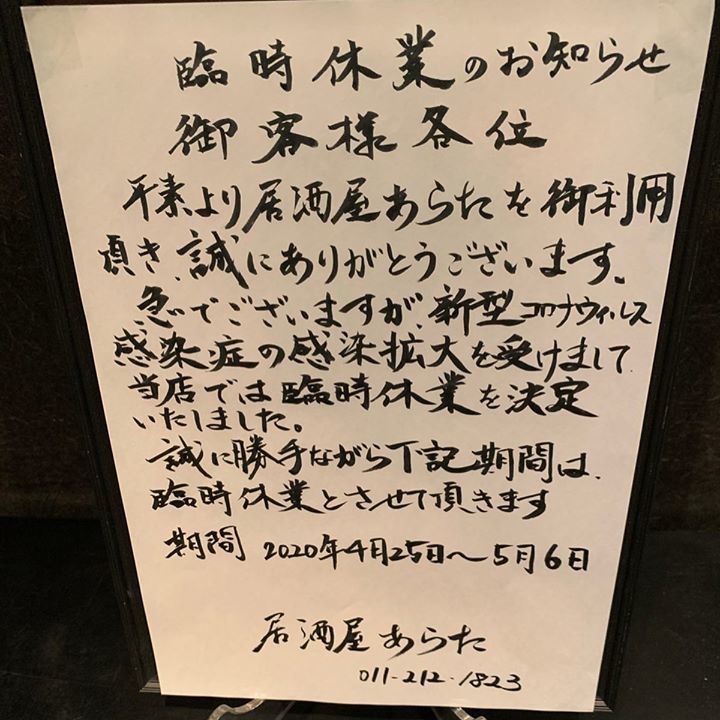 臨時休業のお知らせ
御客様各位
平素より居酒屋あらたを御利用
頂き、誠にありがとうございます。
急でございますが、新型コロナウィルス
感染症の感染拡大を受けまして
当店では臨時休業を決定
いたしました。
誠に勝手ながら下記期間は、
臨時休業とさせて頂きます
期間 2020年4月25日〜5月6日
居酒屋あらた
011-212-1823